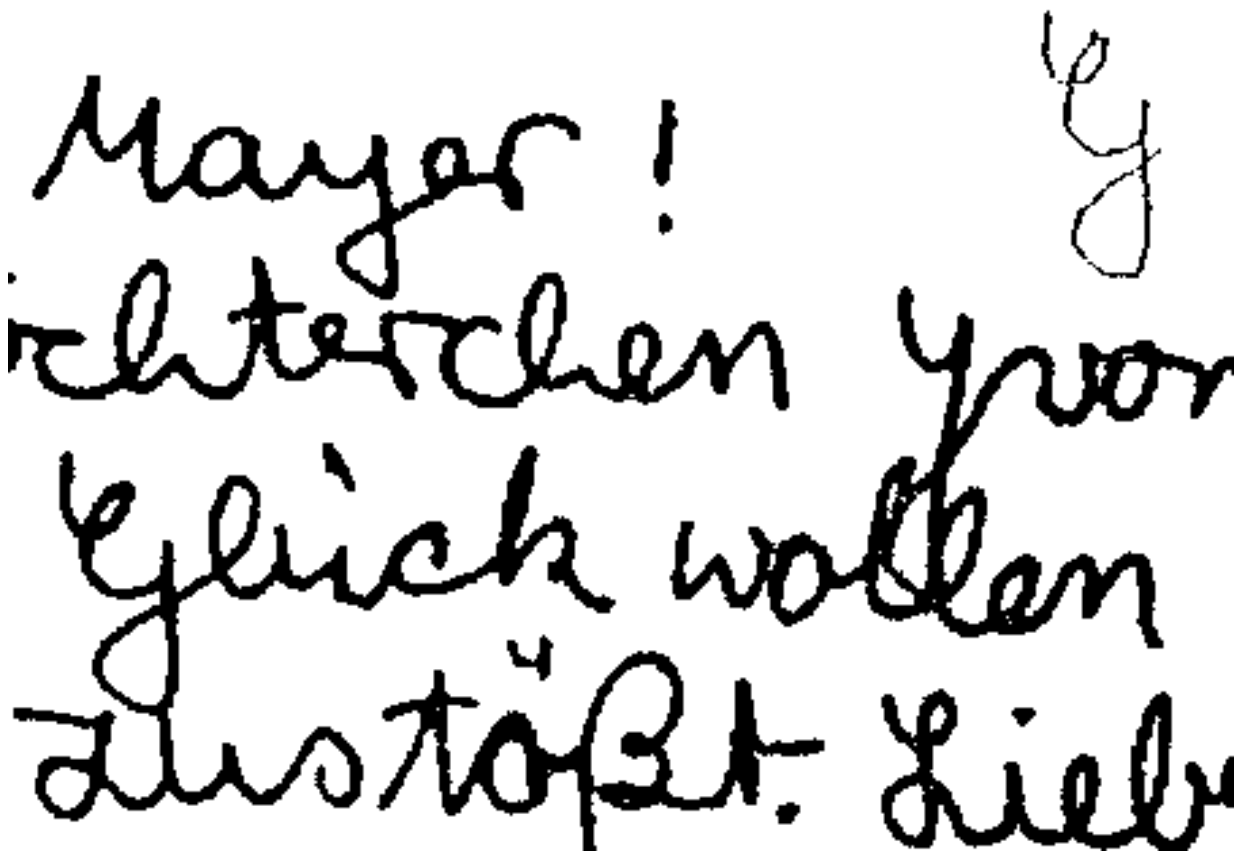 Mayer! G
chterchen Yvon
Glück wollen
zustößt. Liebe